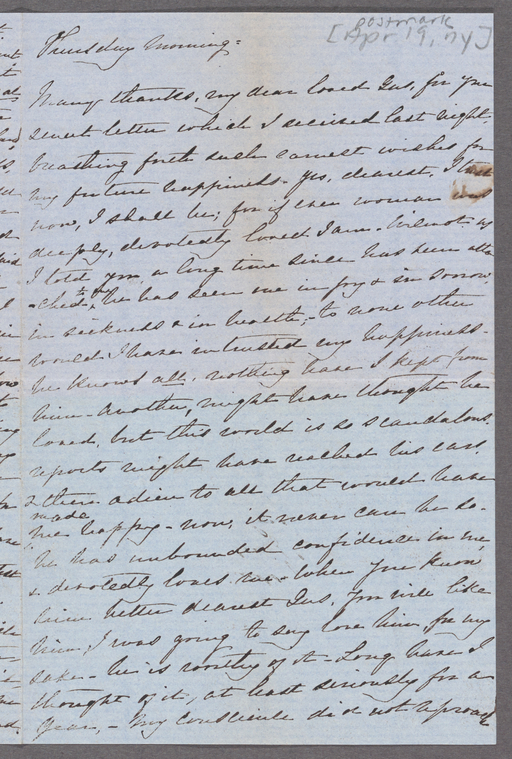 postmark
[Apr 19, 74]
Thursday Morning =
Many thanks, my dear loved Gus, for your
sweet letter which I received last night
breathing forth such earnest wishes for
my future happiness - yes, dearest, I trust
now, I shall be; for if ever woman was
deeply, devotedly loved I am. as
I told you a long time since has been atta
-ched to me, he has seen me in joy & in sorrow
in sickness & in health, - to none other
would I have intrusted my happiness -
he knows all, nothing have I kept from
him - Another, might have thought he
loved, but this world is so scandalous
reports might have reached his ears
& then adieu to all that would have
made
me happy - now, it never can be so -
he has unbounded confidence in me,
& devotedly loves me - When you know
him better dearest Gus, you will like
him, I was going to say love him, for my
sake - he is worthy of it - Long have I
thought of it, at least seriously for a
year, - My conscience did not reproach